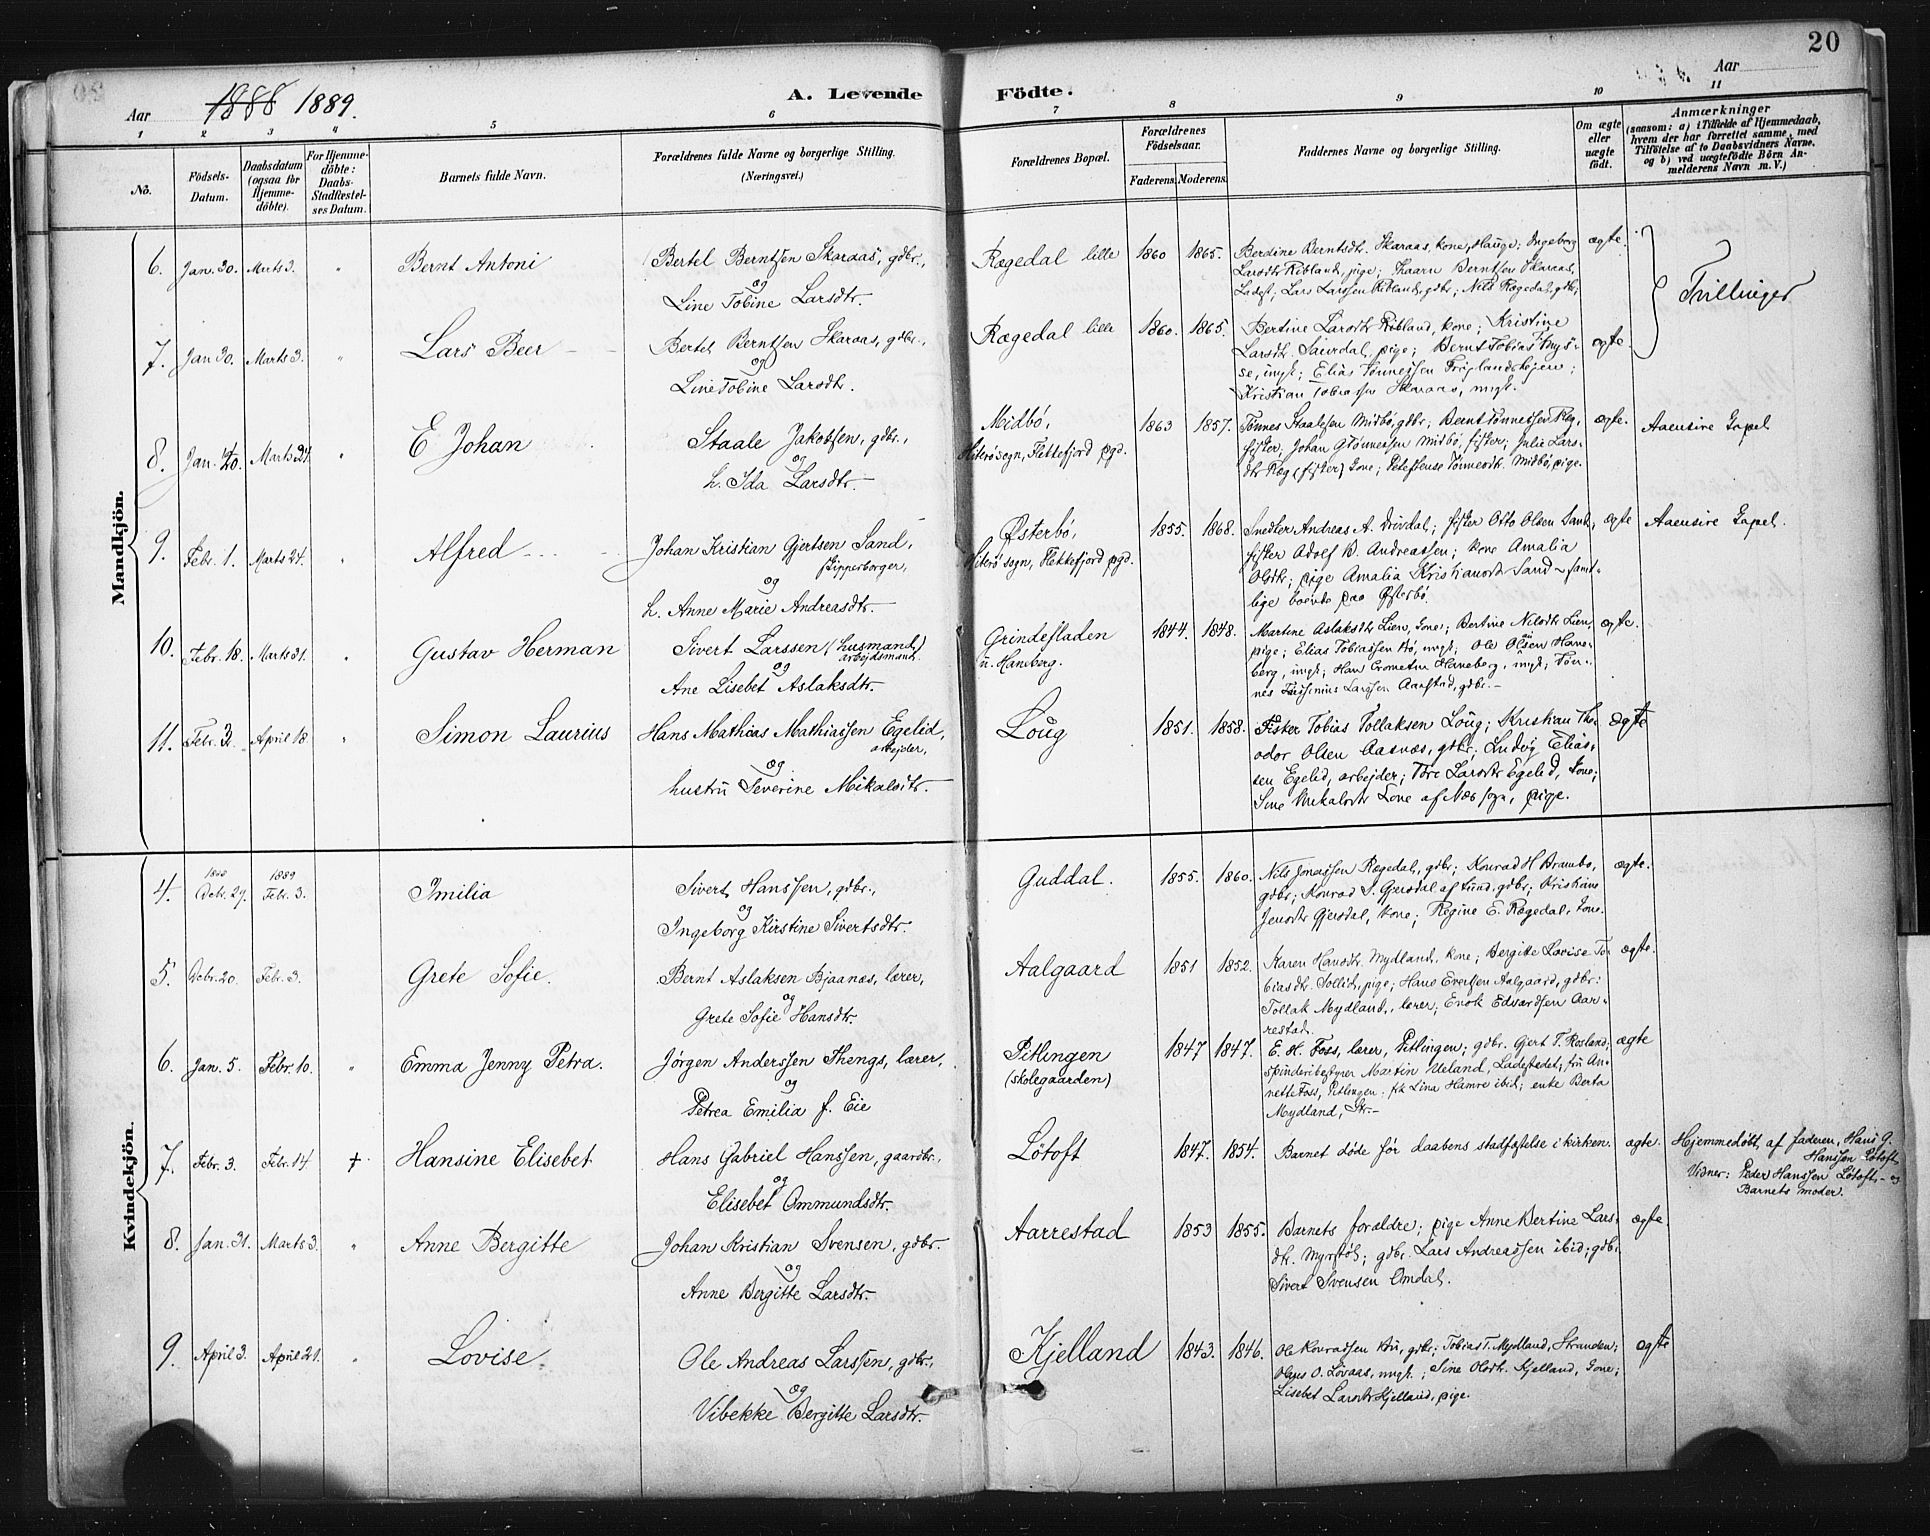 20
Aar 1888 1889.
A. Levende Födte.
Aar
1 2 3 4 5 6 7 8 9 10 11
No.
Födsels-Datum.
Daabsdatum (ogsaa for Hjemmedöbte).
For Hjemmedöbte: Daabs-Stadfæstelses Datum.
Barnets fulde Navn.
Forældrenes fulde Navne og borgerlige Stilling. (Næringsvei.)
Forældrenes Bopæl.
Forældrenes Födselsaar.
Faderens. Moderens.
Faddernes Navne og borgerlige Stilling.
Om ægte eller uægte födt.
Anmærkninger
(saasom: a) i Tilfælde af Hjemmedaab, hvem der har forrettet samme, med Tilföielse af to Daabsvidners Navne, og b) ved uægtefödte Börn Anmelderens Navn m. V.)
Mandkjön.
6. Jan. 30. Marts 3. " Bernt Antoni
Bertel Berntsen Skaraas, gdbr.,
og
Line Tobine Larsdtr.
Rægedal lille 1860 1865.
Berdine Berntsdtr. Skaraas, kone, Hauge; Ingeborg
Larsdtr Ribland, pige; Berntsen Skaraas,
Ladest; Lars Larssen Ribland, gdbr; Nils Rægedal, gdbr;
ægte.
Tvillinger
7. Jan 30. Marts 3. " Lars Beer
Bertel Berntsen Skaraas, gdbr.,
og
Line Tobine Larsdtr.
Rægedal lille 1860. 1865.
Bertine Larsdtr Ribland, kone; Kristine
Larsdtr. Saurdal, pige; Bernt Tobias
se, ungk; Elias Tønnessen
Kristian Tobiassen Skaraas, ungk.
ægte.
8. Jan. 20. Marts 24. " E Johan
Staale Jakobsen, gdbr.,
og
h. Ida Larsdtr.
Midbö,
Hiterö sogn, Flekkefjord pgd.
1863 1857.
Tönnes Staalesen Midbö, gdbr; Bernt Tönnessen Rleg,
fisker; Johan Gtönnessen Midbö, fisker; Julie Lars-
dtr Rleg (fisker) kone; Tönnesdtr. Midbö, pige.
ægte. Aaensire Kapel
9. Febr. 1. Marts 24. " Alfred
Johan Kristian Gjertsen Sand,
skipperborger,
og
h. Anne Marie Andreasdtr.
Østerbö,
Hiterö sogn, Flekkefjord pgd.
1855. 1868.
Snedker Andreas A. Drivdal; fisker Otto Olsen Sand;
fisker Adolf B. Andreassen; kone Amalia
Olsdtr; pige Amalia Kristiansdtr Sand – samt-
lige boende paa Østerbö.
ægte Aaensire Kapel.
10. Febr. 18. Marts 31. " Gustav Herman
Sivert Larssen (husmand)
arbejdsmand
og
Ane Lisebet Aslaksdtr.
Grindefladen
u. Haneberg.
1844. 1848.
Martine Aslaksdtr Lien, kone; Bertine Nilsdtr Lien,
pige; Elias Tobiassen Bö, ungk; Ole Olsen Hane-
berg, ungk; Hans Haneberg, ungk; Tön-
nes Larssen Aarstad, gdbr.–
ægte.
11. Febr. 3. April 18. " Simon Laurius
Hans Mathias Mathiassen Egelid,
arbejder,
og
hustru Severine Mikalsdtr.
Loug 1851. 1858.
Fisker Tobias Tollaksen Loug; Kristian The-
odor Olsen Aasnæs, gdbr; Ludvig Elias-
sen Egelid, arbejder; Tore Larsdtr Egelid, kone;
Sine Mikalsdtr Lone af Næs sogn, pige.
ægte
Kvindekjön.
4. 1888 Decbr. 27. 1889 Febr. 3. Imilia
Sivert Hanssen, gdbr.,
og
Ingeborg Kirstine Sivertsdtr.
Guddal. 1855. 1860.
Nils Jonassen Rægedal, gdbr; Konrad H Brambo,
gdbr; Konrad S. Gjersdal af Lund, gdbr; Kristiane
Jensdtr Gjersdal, kone; Regine E. Rægedal, kone.
ægte.
5. Decbr. 20. Febr. 3. Grete Sofie.
Bernt Aslaksen Bjaanes, lærer,
og
Grete Sofie Hansdtr.
Aalgaard 1851 1852.
Karen Hansdtr. Mydland, kone; Bergitte Lovise To-
biasdtr. Sollid, pige; Hans Evertsen Aalgaard, gdbr:
Tollak Mydland, lærer; Enok Edvardsen Aar-
restad.
ægte.
6. Jan. 5. Febr. 10. " Emma Jenny Petra.
Jørgen Anderssen Thengs, lærer,
og
Petrea Emilia f. Eie
Pitlingen
(skolegaarden)
1847 1847.
E. H. Foss, lærer, Pitlingen; gdbr. Gjert T. Rosland;
spinderibestyrer Martin Ueland, Ladestedet; fru An-
nette Foss, Pitlingen; frk Lina Hamre ibid; enke Berta
Mydland, Str.–
ægte
7. Febr. 3. Febr. 14. † Hansine Elisebet
Hans Gabriel Hanssen, gaardbr.,
og
Elisebet Ommundsdtr.
Lötoft 1847. 1854.
Barnet döde för daabens stadfæstelse i kirken.
ægte.
Hjemmedöbt af faderen, Hans G.
Hanssen Lötoft
Vidner: Peder Hanssen Lötoft, – og
Barnets moder.
8. Jan. 31. Marts 3. " Anne Bergitte
Johan Kristian Svensen, gdbr.
og
Anne Bergitte Larsdtr.
Aarrestad 1853 1855.
Barnets forældre; pige Anne Bertine Lars-
dtr. Myrstöl; gdbr. Lars Andreassen ibid; gdbr.
Sivert Svensen Omdal.
ægte.
9. April 3. April 21. " Lovise.
Ole Andreas Larssen, gdbr.,
og
Vibekke Bergitte Larsdtr.
Kjelland 1843. 1846.
Ole Konradsen Bu, gdbr; Tobias T. Mydland, Stranden;
Olaus O. Lövaas, ungk.; Sine Olsdtr. Kjelland, kone;
Lisebet Larsdtr Kjelland, pige.
ægte